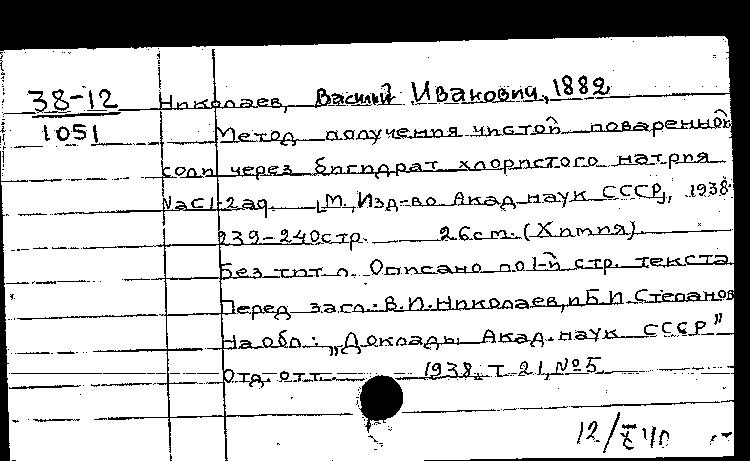 38-12
1051
Николаев, Василий Иванович, 1882
Метод получения чистой поваренной
соли через бигидрат хлористого натрия
NaCl·2aq. [М., Изд-во Акад. наук СССР], 1938
239-240стр. 26см. (Химия).
Без тит. л. Описано по 1-й стр. текста
Перед загл.: В.И.Николаев, и Б.И.Степанов
На обл.: „Доклады Акад. наук СССР"
Отд. отт. 1938. т 21, №5
12/X 40